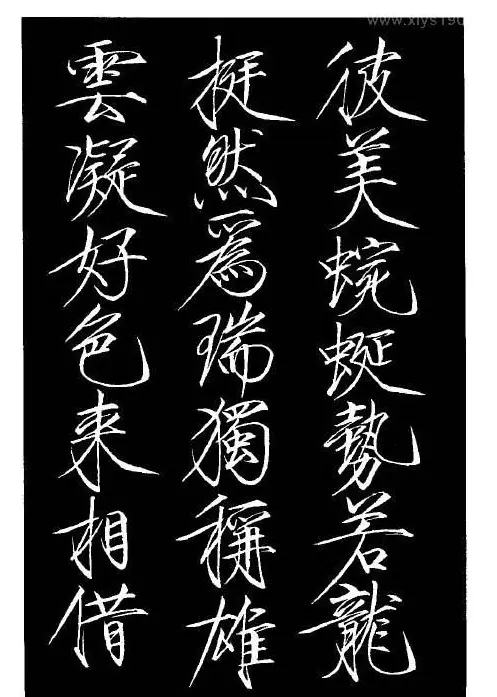 www.xlys190
彼美蜿蜒勢若龍
挺然爲瑞獨稱雄
雲凝好色来相借